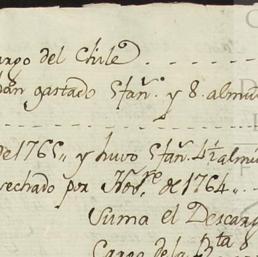 argo del Chile
han gastado 5 fan.s y 8. almu
de 1765,, y huvo 5 fan.s 4½ almu
vechado por Nov.re de 1764,,
Suma el Descarg
Cargo de la